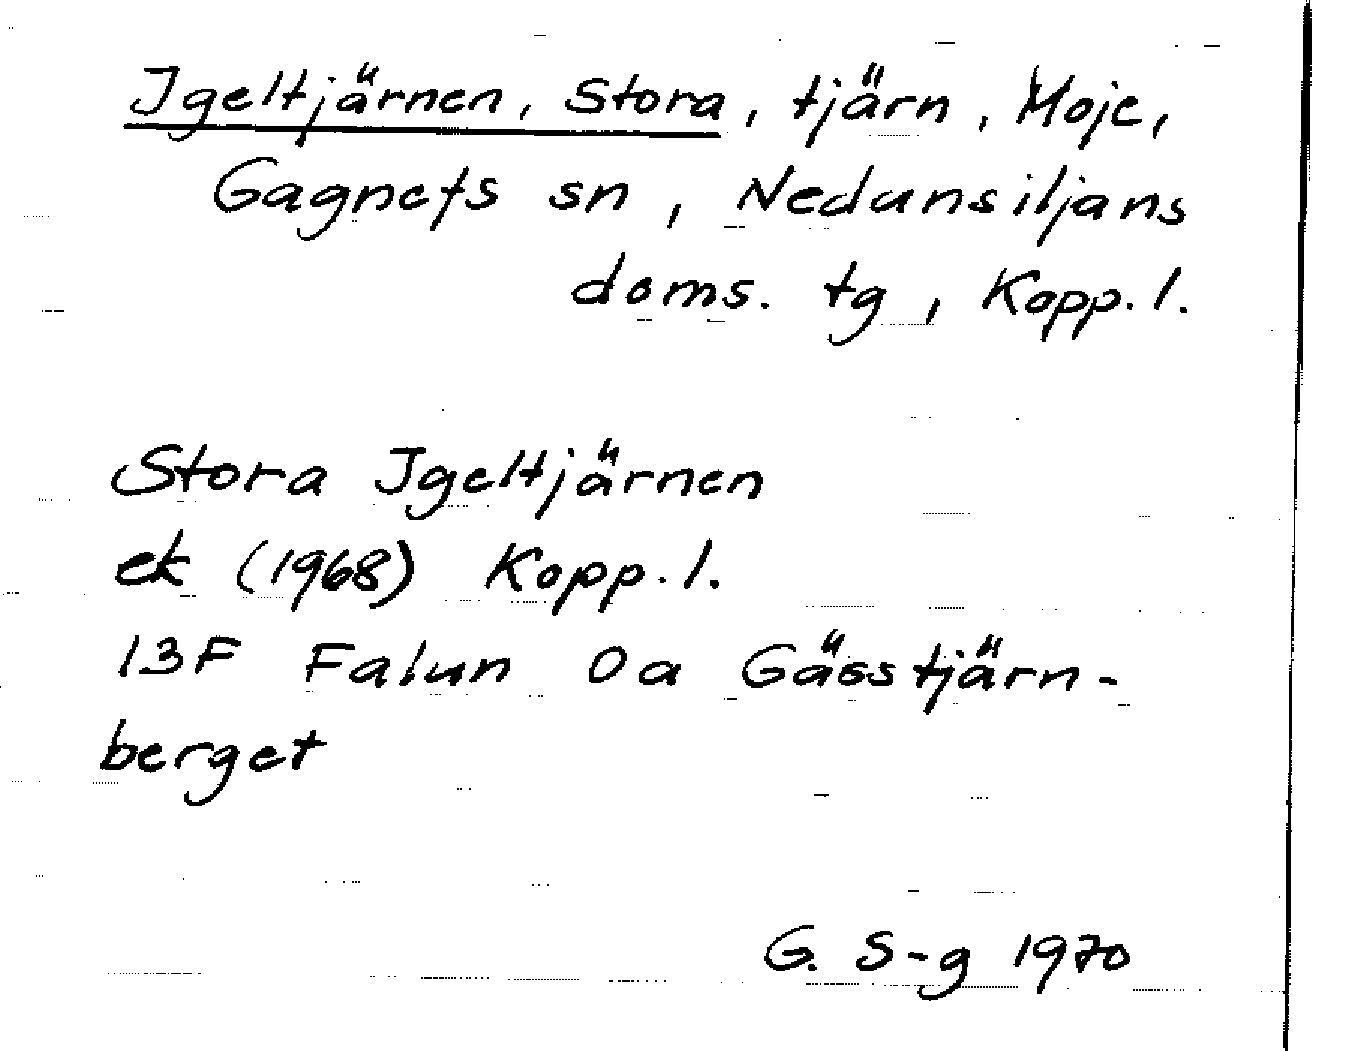 Igeltjärnen, Stora, tjärn, Moje,
Gagnefs sn, Nedansiljans
doms. tg, Kopp. l.
Stora Igeltjärnen
ek (1968) Kopp. l.
13F Falun 0a Gässtjärn-
berget
G. S-g 1970